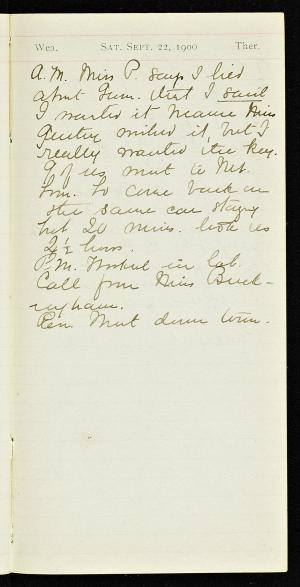 Wea. SAT. SEPT. 22, 1900 Ther.
A.M. Miss P. says I lied
about Gum. that I said
I wanted it because Miss
wished it, but I
really wanted the Key.
9 of us went to Nat.
to come back on
the same car staying
but 20 mins. took us
2½ hours.
P.M. Worked in lab.
Call from Miss Buck-
ingham.
Eve. Went down town.